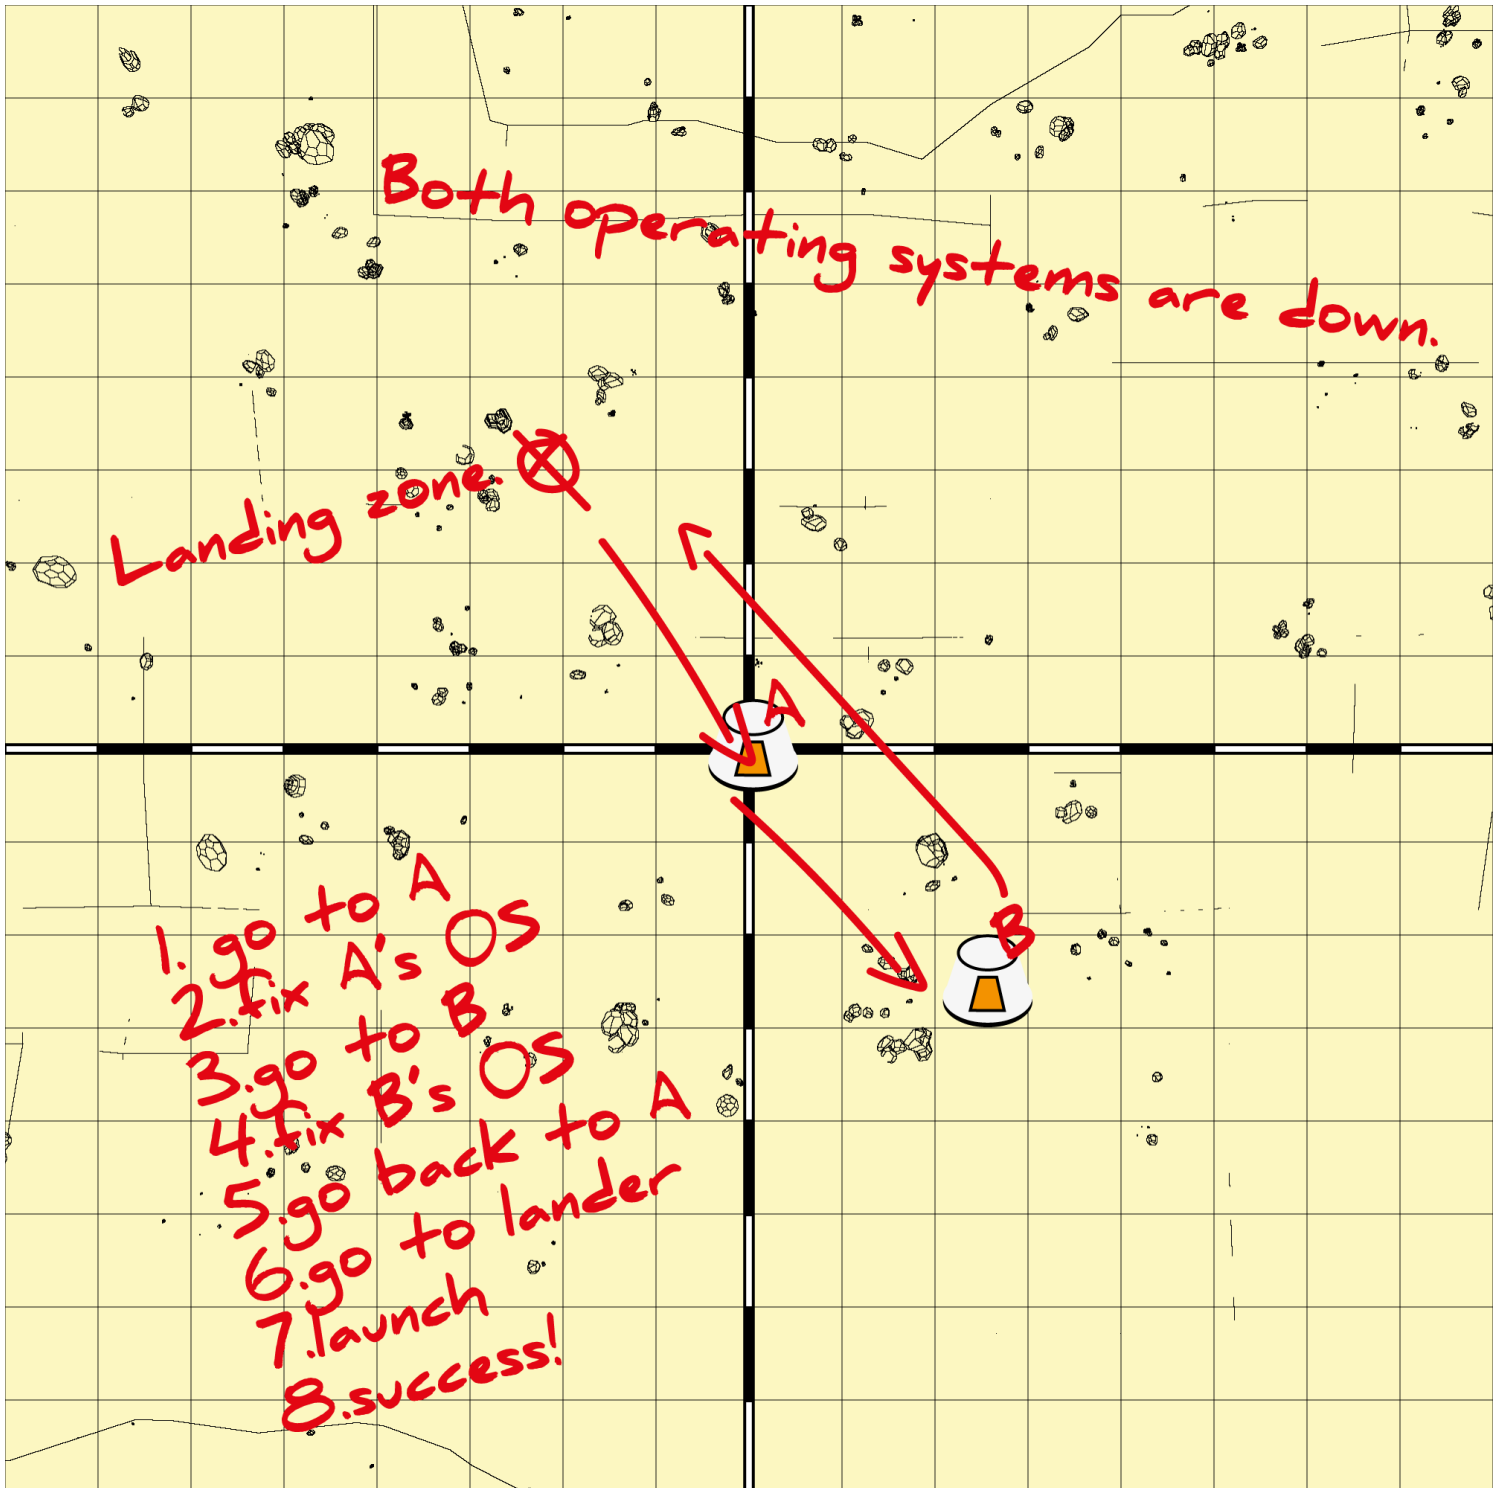 Both operating systems are down.
Landing zone.
A
B
1. go to A
2. fix A's OS
3. go to B
4. fix B's OS
5. go back to A
6. go to lander
7. launch
8. success!